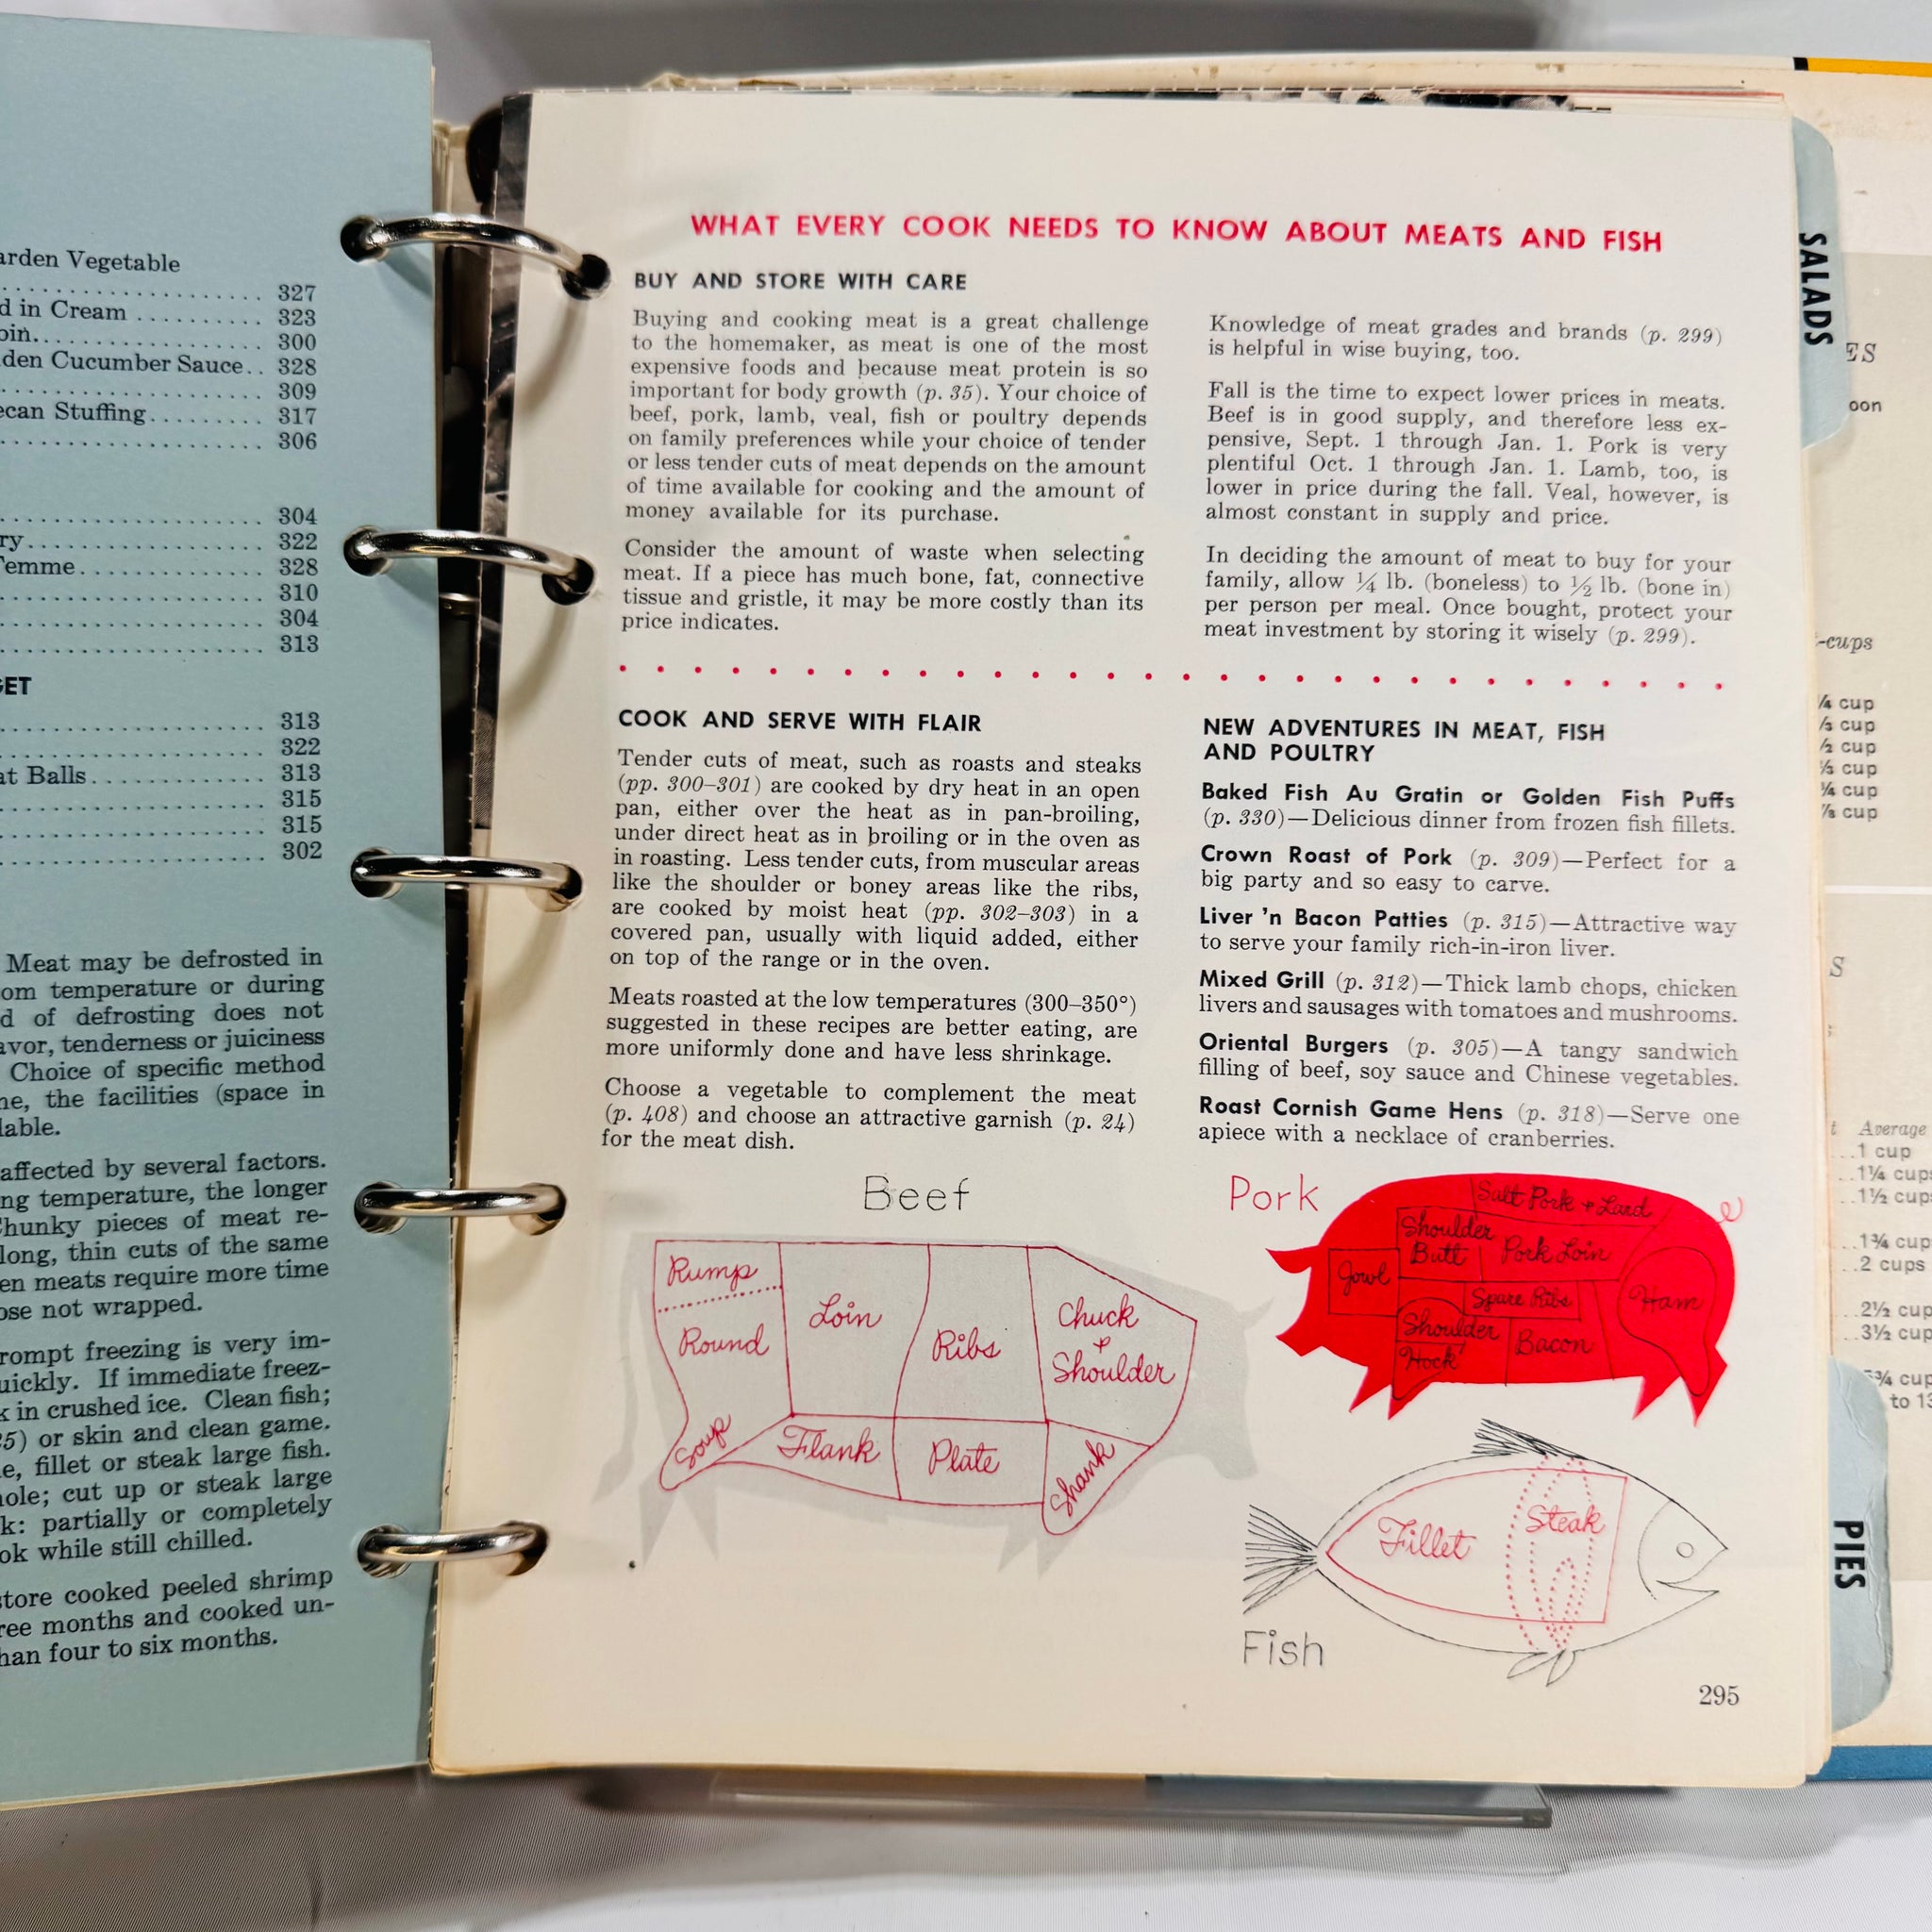 arden Vegetable
327
d in Cream 323
300
den Cucumber Sauce.. 328
309
ecan Stuffing 317
306
304
322
Femme 328
310
304
313
GET
313
322
at Balls 313
315
315
302
Meat may be defrosted in
om temperature or during
d of defrosting does not
avor, tenderness or juiciness
Choice of specific method
ne, the facilities (space in
lable.
affected by several factors.
ng temperature, the longer
Chunky pieces of meat re-
long, thin cuts of the same
en meats require more time
ose not wrapped.
rompt freezing is very im-
uickly. If immediate freez-
k in crushed ice. Clean fish;
25) or skin and clean game.
e, fillet or steak large fish.
hole; cut up or steak large
k: partially or completely
ok while still chilled.
store cooked peeled shrimp
ree months and cooked un-
han four to six months.
WHAT EVERY COOK NEEDS TO KNOW ABOUT MEATS AND FISH
BUY AND STORE WITH CARE
Buying and cooking meat is a great challenge
to the homemaker, as meat is one of the most
expensive foods and because meat protein is so
important for body growth (p. 35). Your choice of
beef, pork, lamb, veal, fish or poultry depends
on family preferences while your choice of tender
or less tender cuts of meat depends on the amount
of time available for cooking and the amount of
money available for its purchase.
Consider the amount of waste when selecting
meat. If a piece has much bone, fat, connective
tissue and gristle, it may be more costly than its
price indicates.
Knowledge of meat grades and brands (p. 299)
is helpful in wise buying, too.
Fall is the time to expect lower prices in meats.
Beef is in good supply, and therefore less ex-
pensive, Sept. 1 through Jan. 1. Pork is very
plentiful Oct. 1 through Jan. 1. Lamb, too, is
lower in price during the fall. Veal, however, is
almost constant in supply and price.
In deciding the amount of meat to buy for your
family, allow ¼ lb. (boneless) to ½ lb. (bone in)
per person per meal. Once bought, protect your
meat investment by storing it wisely (p. 299).
COOK AND SERVE WITH FLAIR
Tender cuts of meat, such as roasts and steaks
(pp. 300–301) are cooked by dry heat in an open
pan, either over the heat as in pan-broiling,
under direct heat as in broiling or in the oven as
in roasting. Less tender cuts, from muscular areas
like the shoulder or boney areas like the ribs,
are cooked by moist heat (pp. 302–303) in a
covered pan, usually with liquid added, either
on top of the range or in the oven.
Meats roasted at the low temperatures (300–350°)
suggested in these recipes are better eating, are
more uniformly done and have less shrinkage.
Choose a vegetable to complement the meat
(p. 408) and choose an attractive garnish (p. 24)
for the meat dish.
NEW ADVENTURES IN MEAT, FISH
AND POULTRY
Baked Fish Au Gratin or Golden Fish Puffs
(p. 330)—Delicious dinner from frozen fish fillets.
Crown Roast of Pork (p. 309)—Perfect for a
big party and so easy to carve.
Liver 'n Bacon Patties (p. 315)—Attractive way
to serve your family rich-in-iron liver.
Mixed Grill (p. 312)—Thick lamb chops, chicken
livers and sausages with tomatoes and mushrooms.
Oriental Burgers (p. 305)—A tangy sandwich
filling of beef, soy sauce and Chinese vegetables.
Roast Cornish Game Hens (p. 318)—Serve one
apiece with a necklace of cranberries.
Beef
Rump
Round
Loin
Ribs
Chuck
+
Shoulder
Soup
Flank
Plate
Shank
Pork
Salt Pork + Lard
Shoulder
Butt
Pork Loin
Jowl
Spare Ribs
Ham
Shoulder
Hock
Bacon
Fillet
Steak
Fish
295
SALADS
PIES
ES
oon
-cups
¼ cup
⅓ cup
½ cup
⅓ cup
¾ cup
⅞ cup
S
t Average
1 cup
1¼ cups
1½ cups
1¾ cup
2 cups
2½ cup
3½ cup
¾ cup
to 13